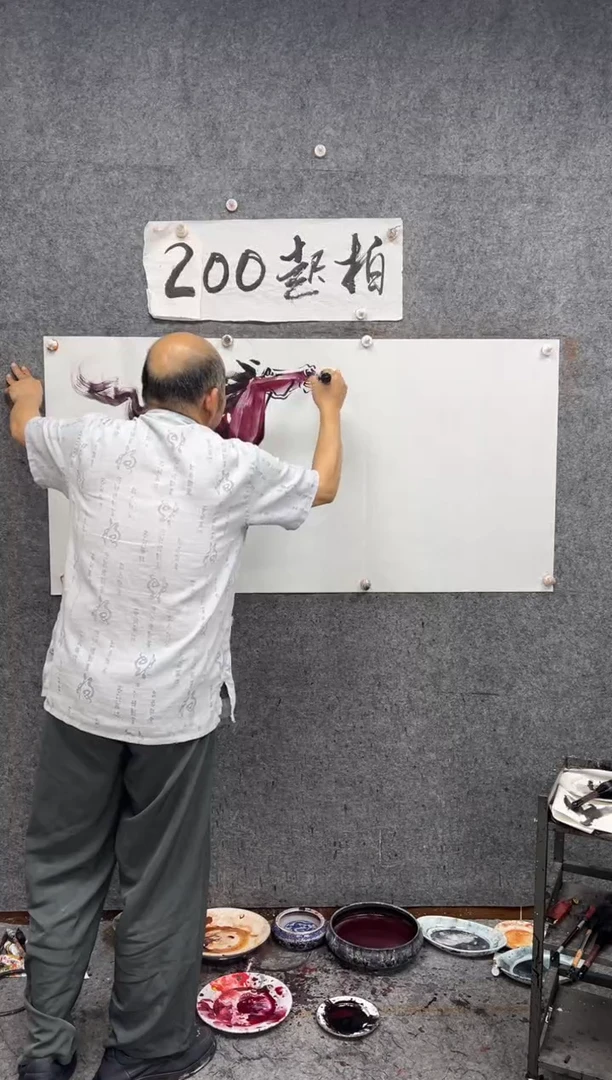 200起拍